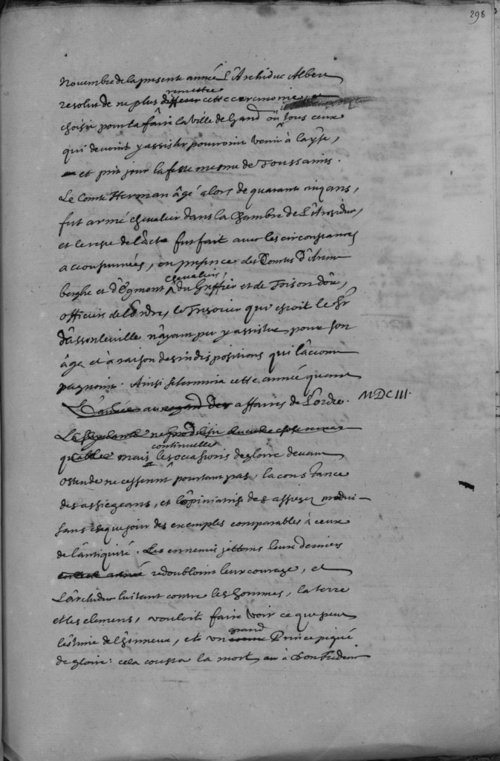 298
Novembre de la presente année l'Archiduc Albert
remettre
resolut de ne plus differer cette ceremonie, et
choisir pour la faire la ville de Gand où tous ceux
qui devoint y assister pouvoint venir à l'ayse,
et prit jour la feste mesme de Toussaints.
Le Comte Herman âgé alors de quarant cinq ans,
fut armé chevalier dans la chambre de l'Archiduc,
et le reste de l'acte fut fait avec les circonstances
accoustumées, en presence des Comtes d'Arem
chevaliers
berghe et d'Egmont, du Greffier et de Toison d'or,
officiers de l'ordre, le Tresorier qui estoit le Sr
d'Assonleville n'ayant peu y assister pour son
âge et à raison des indispositions qui l'accom
pagnoint. Ainsi se termina cette année quant
aux affaires de l'ordre. MDCIII.
continuelles
mais les occasions de gloire devant
Ostende ne cessoint pourtant pas; la constance
des assiegeans, et l'opiniatrise des assiegez produi-
sans chaque jour des exemples comparables à ceux
de l'antiquité. Les ennemis jettoint leurs derniers
redoubloint leur courage, et
L'archiduc luitant contre les hommes, la terre
et les elemens, vouloit faire voir ce que peut
l'estime de l'honneur, et un
grand
Prince piqué
de gloire: cela cousta la mort à Don